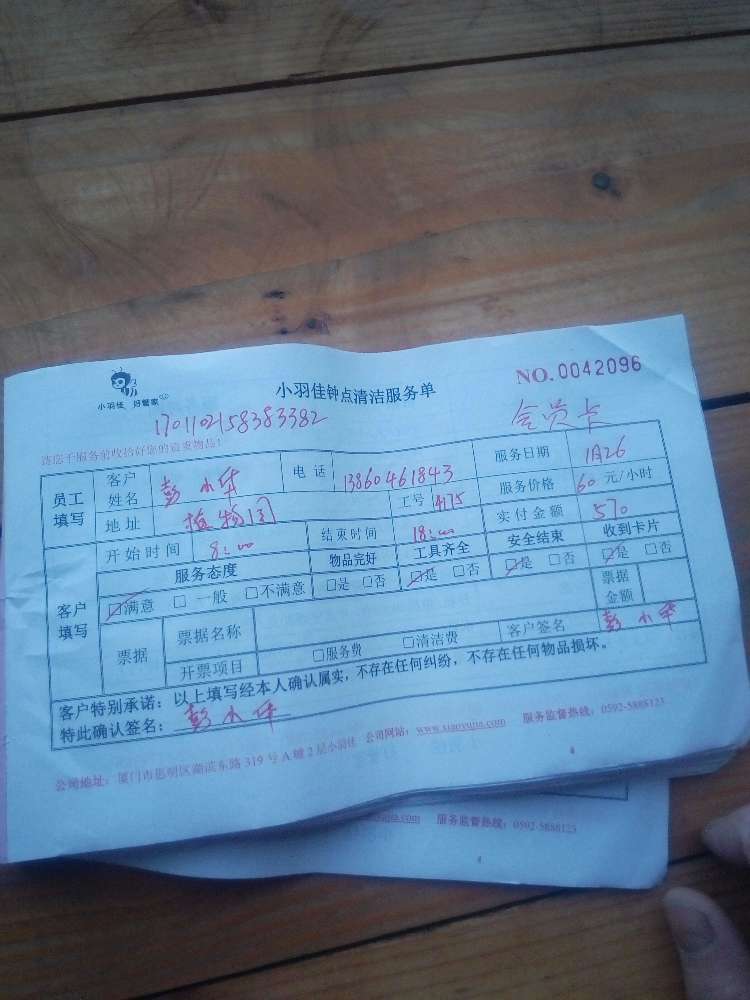 小羽佳 好管家
小羽佳钟点清洁服务单
NO.0042096
1701102158383382
会员卡
请您于服务前收拾好您的贵重物品！
员工填写 客户姓名 彭小华 电话 13860461843 服务日期 1月26
地址 植物园 工号 4175 服务价格 60 元/小时
客户填写 开始时间 8:00 结束时间 18:00 实付金额 570
服务态度 物品完好 工具齐全 安全结束 收到卡片
☑满意 □一般 □不满意 □是 □否 ☑是 □否 ☑是 □否 ☑是 □否
票据 票据名称 票据金额
开票项目 □服务费 □清洁费 客户签名 彭小华
客户特别承诺：以上填写经本人确认属实，不存在任何纠纷，不存在任何物品损坏。
特此确认签名：彭小华
公司地址：厦门市思明区湖滨东路 319 号 A 幢 2 层小羽佳 公司网站：www.xiaoyujia.com 服务监督热线：0592-5888123
服务监督热线：0592-5888123